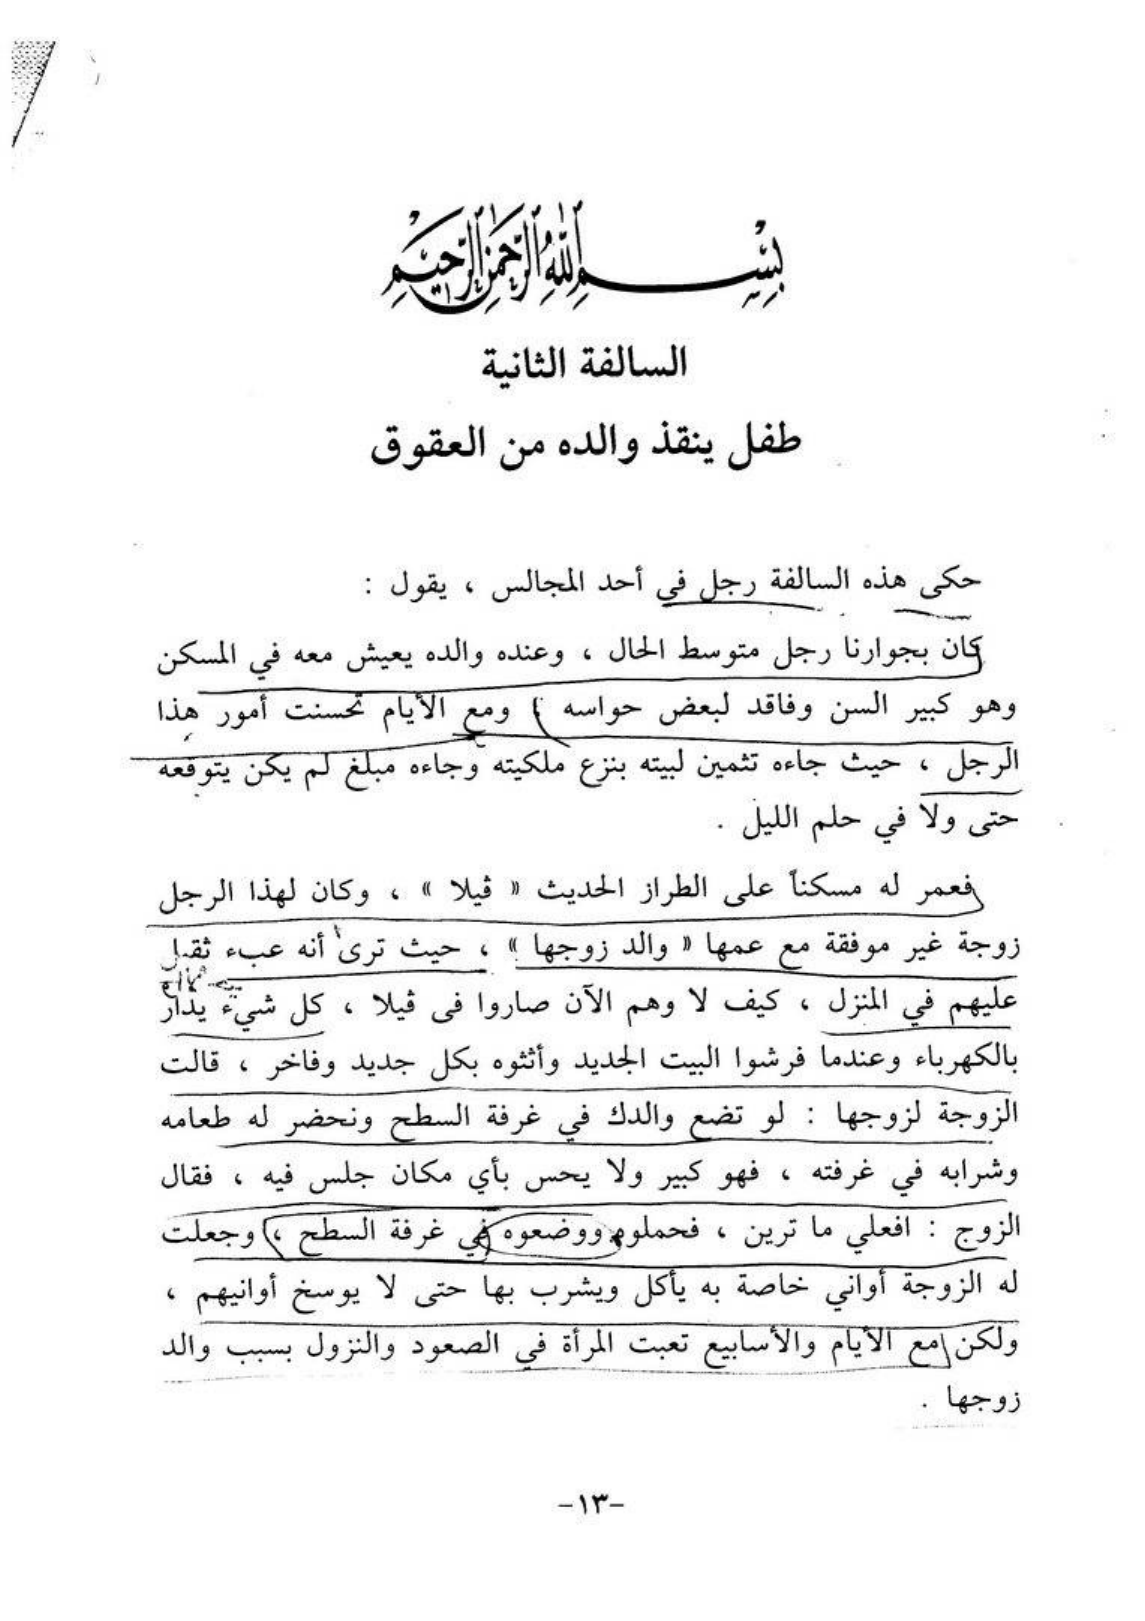 بِسْمِ اللَّهِ الرَّحْمَنِ الرَّحِيمِ
السالفة الثانية
طفل ينقذ والده من العقوق
حكى هذه السالفة رجل في أحد المجالس ، يقول :
كان بجوارنا رجل متوسط الحال ، وعنده والده يعيش معه في المسكن
وهو كبير السن وفاقد لبعض حواسه ، ومع الأيام تحسنت أمور هذا
الرجل ، حيث جاءه تثمين لبيته بنزع ملكيته وجاءه مبلغ لم يكن يتوقعه
حتى ولا في حلم الليل .
فعمر له مسكناً على الطراز الحديث « ڤيلا » ، وكان لهذا الرجل
زوجة غير موفقة مع عمها « والد زوجها » ، حيث ترى أنه عبء ثقيل
عليهم في المنزل ، كيف لا وهم الآن صاروا فى ڤيلا ، كل شيء يدار
بالكهرباء وعندما فرشوا البيت الجديد وأثثوه بكل جديد وفاخر ، قالت
الزوجة لزوجها : لو تضع والدك في غرفة السطح ونحضر له طعامه
وشرابه في غرفته ، فهو كبير ولا يحس بأي مكان جلس فيه ، فقال
الزوج : افعلي ما ترين ، فحملوه ووضعوه في غرفة السطح ، وجعلت
له الزوجة أواني خاصة به يأكل ويشرب بها حتى لا يوسخ أوانيهم ،
ولكن مع الأيام والأسابيع تعبت المرأة في الصعود والنزول بسبب والد
زوجها .
-١٣-